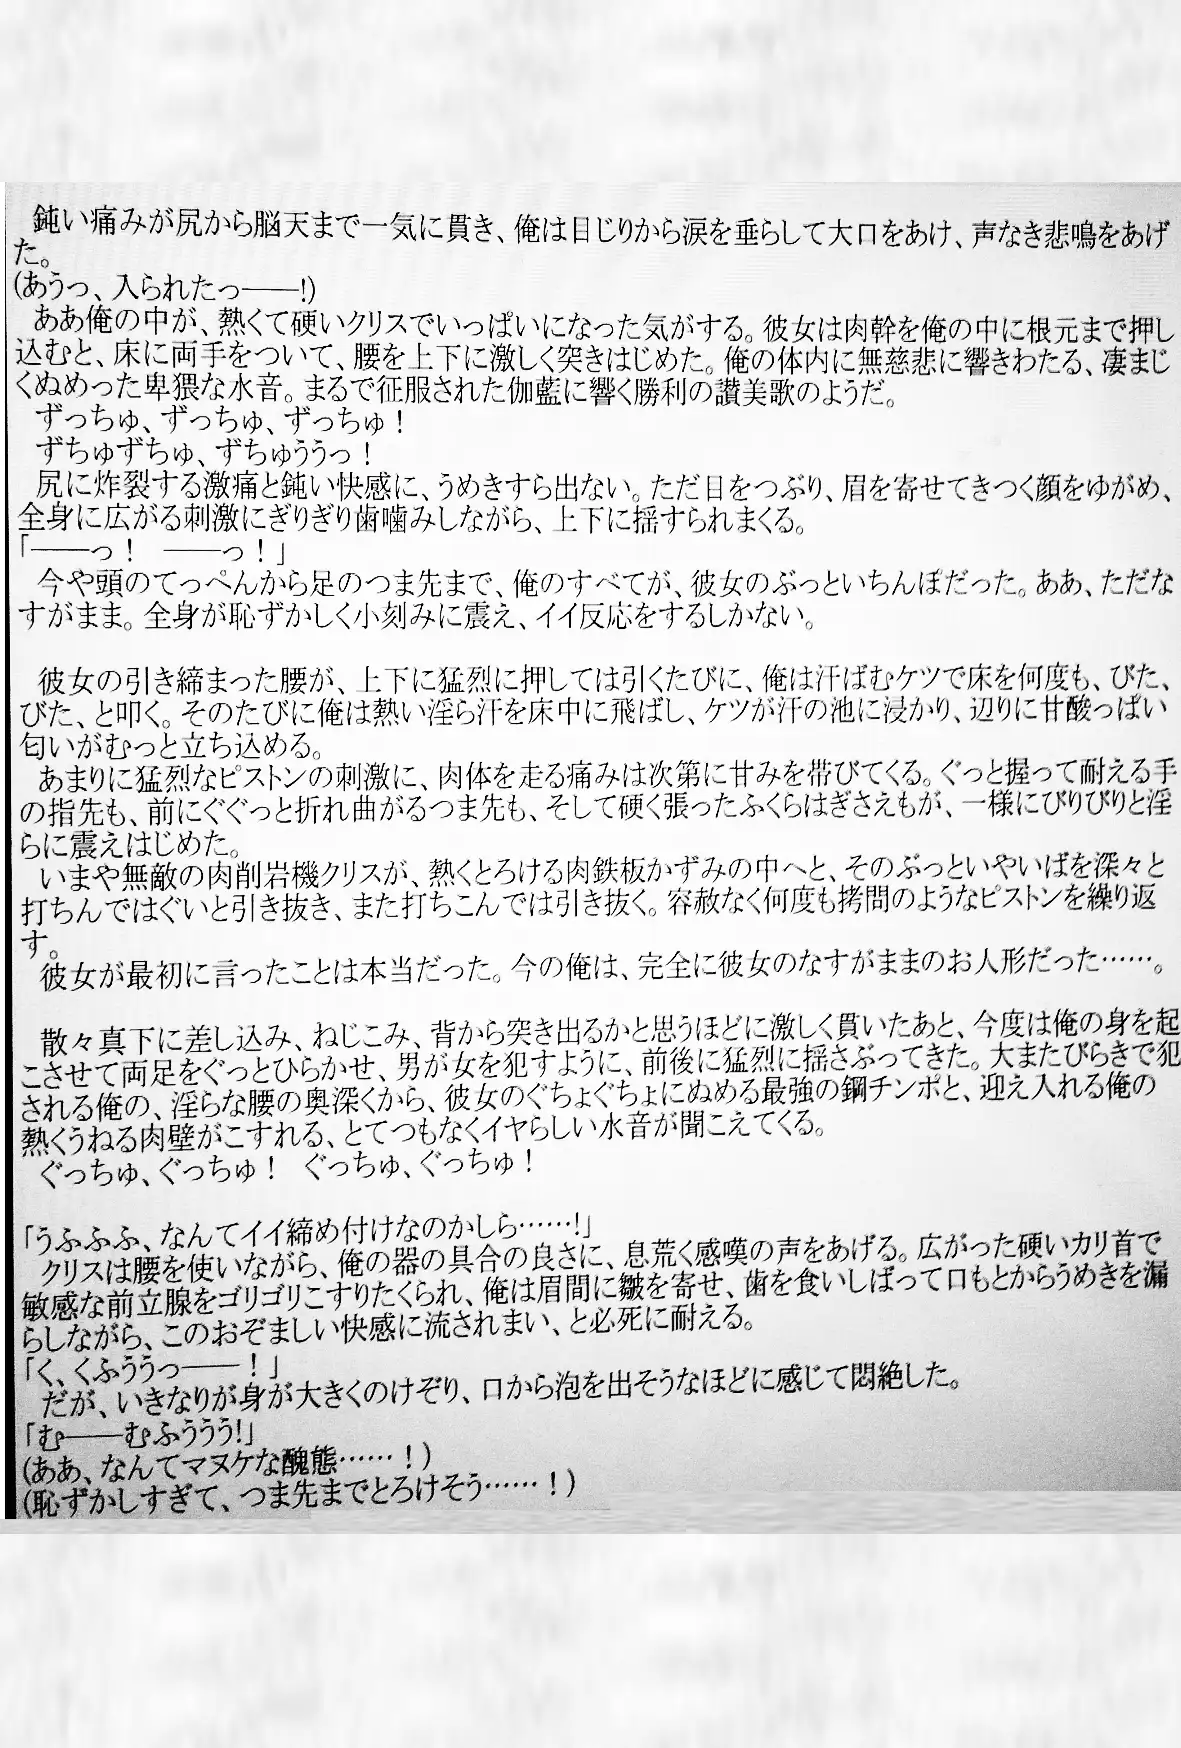 鈍い痛みが尻から脳天まで一気に貫き、俺は目じりから涙を垂らして大口をあけ、声なき悲鳴をあげ
た。
(あうっ、入られたっ――!)
ああ俺の中が、熱くて硬いクリスでいっぱいになった気がする。彼女は肉幹を俺の中に根元まで押し
込むと、床に両手をついて、腰を上下に激しく突きはじめた。俺の体内に無慈悲に響きわたる、凄まじ
くぬめった卑猥な水音。まるで征服された伽藍に響く勝利の讃美歌のようだ。
ずっちゅ、ずっちゅ、ずっちゅ！
ずちゅずちゅ、ずちゅううっ！
尻に炸裂する激痛と鈍い快感に、うめきすら出ない。ただ目をつぶり、眉を寄せてきつく顔をゆがめ、
全身に広がる刺激にぎりぎり歯噛みしながら、上下に揺すられまくる。
「――っ！　――っ！」
今や頭のてっぺんから足のつま先まで、俺のすべてが、彼女のぶっといちんぽだった。ああ、ただな
すがまま。全身が恥ずかしく小刻みに震え、イイ反応をするしかない。
彼女の引き締まった腰が、上下に猛烈に押しては引くたびに、俺は汗ばむケツで床を何度も、びた、
びた、と叩く。そのたびに俺は熱い淫ら汗を床中に飛ばし、ケツが汗の池に浸かり、辺りに甘酸っぱい
匂いがむっと立ち込める。
あまりに猛烈なピストンの刺激に、肉体を走る痛みは次第に甘みを帯びてくる。ぐっと握って耐える手
の指先も、前にぐぐっと折れ曲がるつま先も、そして硬く張ったふくらはぎさえもが、一様にびりびりと淫
らに震えはじめた。
いまや無敵の肉削岩機クリスが、熱くとろける肉鉄板かずみの中へと、そのぶっといやいばを深々と
打ちんではぐいと引き抜き、また打ちこんでは引き抜く。容赦なく何度も拷問のようなピストンを繰り返
す。
彼女が最初に言ったことは本当だった。今の俺は、完全に彼女のなすがままのお人形だった……。
散々真下に差し込み、ねじこみ、背から突き出るかと思うほどに激しく貫いたあと、今度は俺の身を起
こさせて両足をぐっとひらかせ、男が女を犯すように、前後に猛烈に揺さぶってきた。大またびらきで犯
される俺の、淫らな腰の奥深くから、彼女のぐちょぐちょにぬめる最強の鋼チンポと、迎え入れる俺の
熱くうねる肉壁がこすれる、とてつもなくイヤらしい水音が聞こえてくる。
ぐっちゅ、ぐっちゅ！　ぐっちゅ、ぐっちゅ！
「うふふふ、なんてイイ締め付けなのかしら……!」
クリスは腰を使いながら、俺の器の具合の良さに、息荒く感嘆の声をあげる。広がった硬いカリ首で
敏感な前立腺をゴリゴリこすりたくられ、俺は眉間に皺を寄せ、歯を食いしばって口もとからうめきを漏
らしながら、このおぞましい快感に流されまい、と必死に耐える。
「く、くふううっ――！」
だが、いきなりが身が大きくのけぞり、口から泡を出そうなほどに感じて悶絶した。
「む――むふううう!」
(ああ、なんてマヌケな醜態……！)
(恥ずかしすぎて、つま先までとろけそう……！)